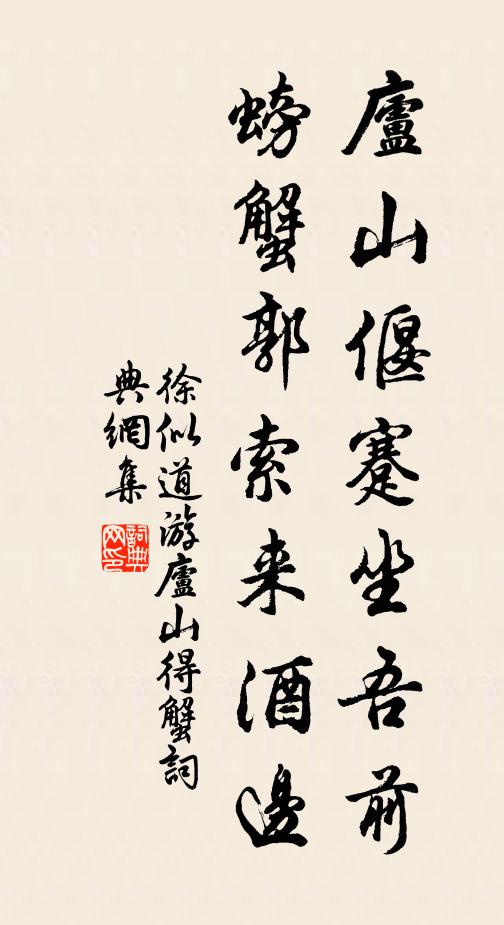 廬山偃蹇坐吾前
螃蟹郭索来酒邊
徐似道游廬山得蟹詞
典網集
詞典
网印